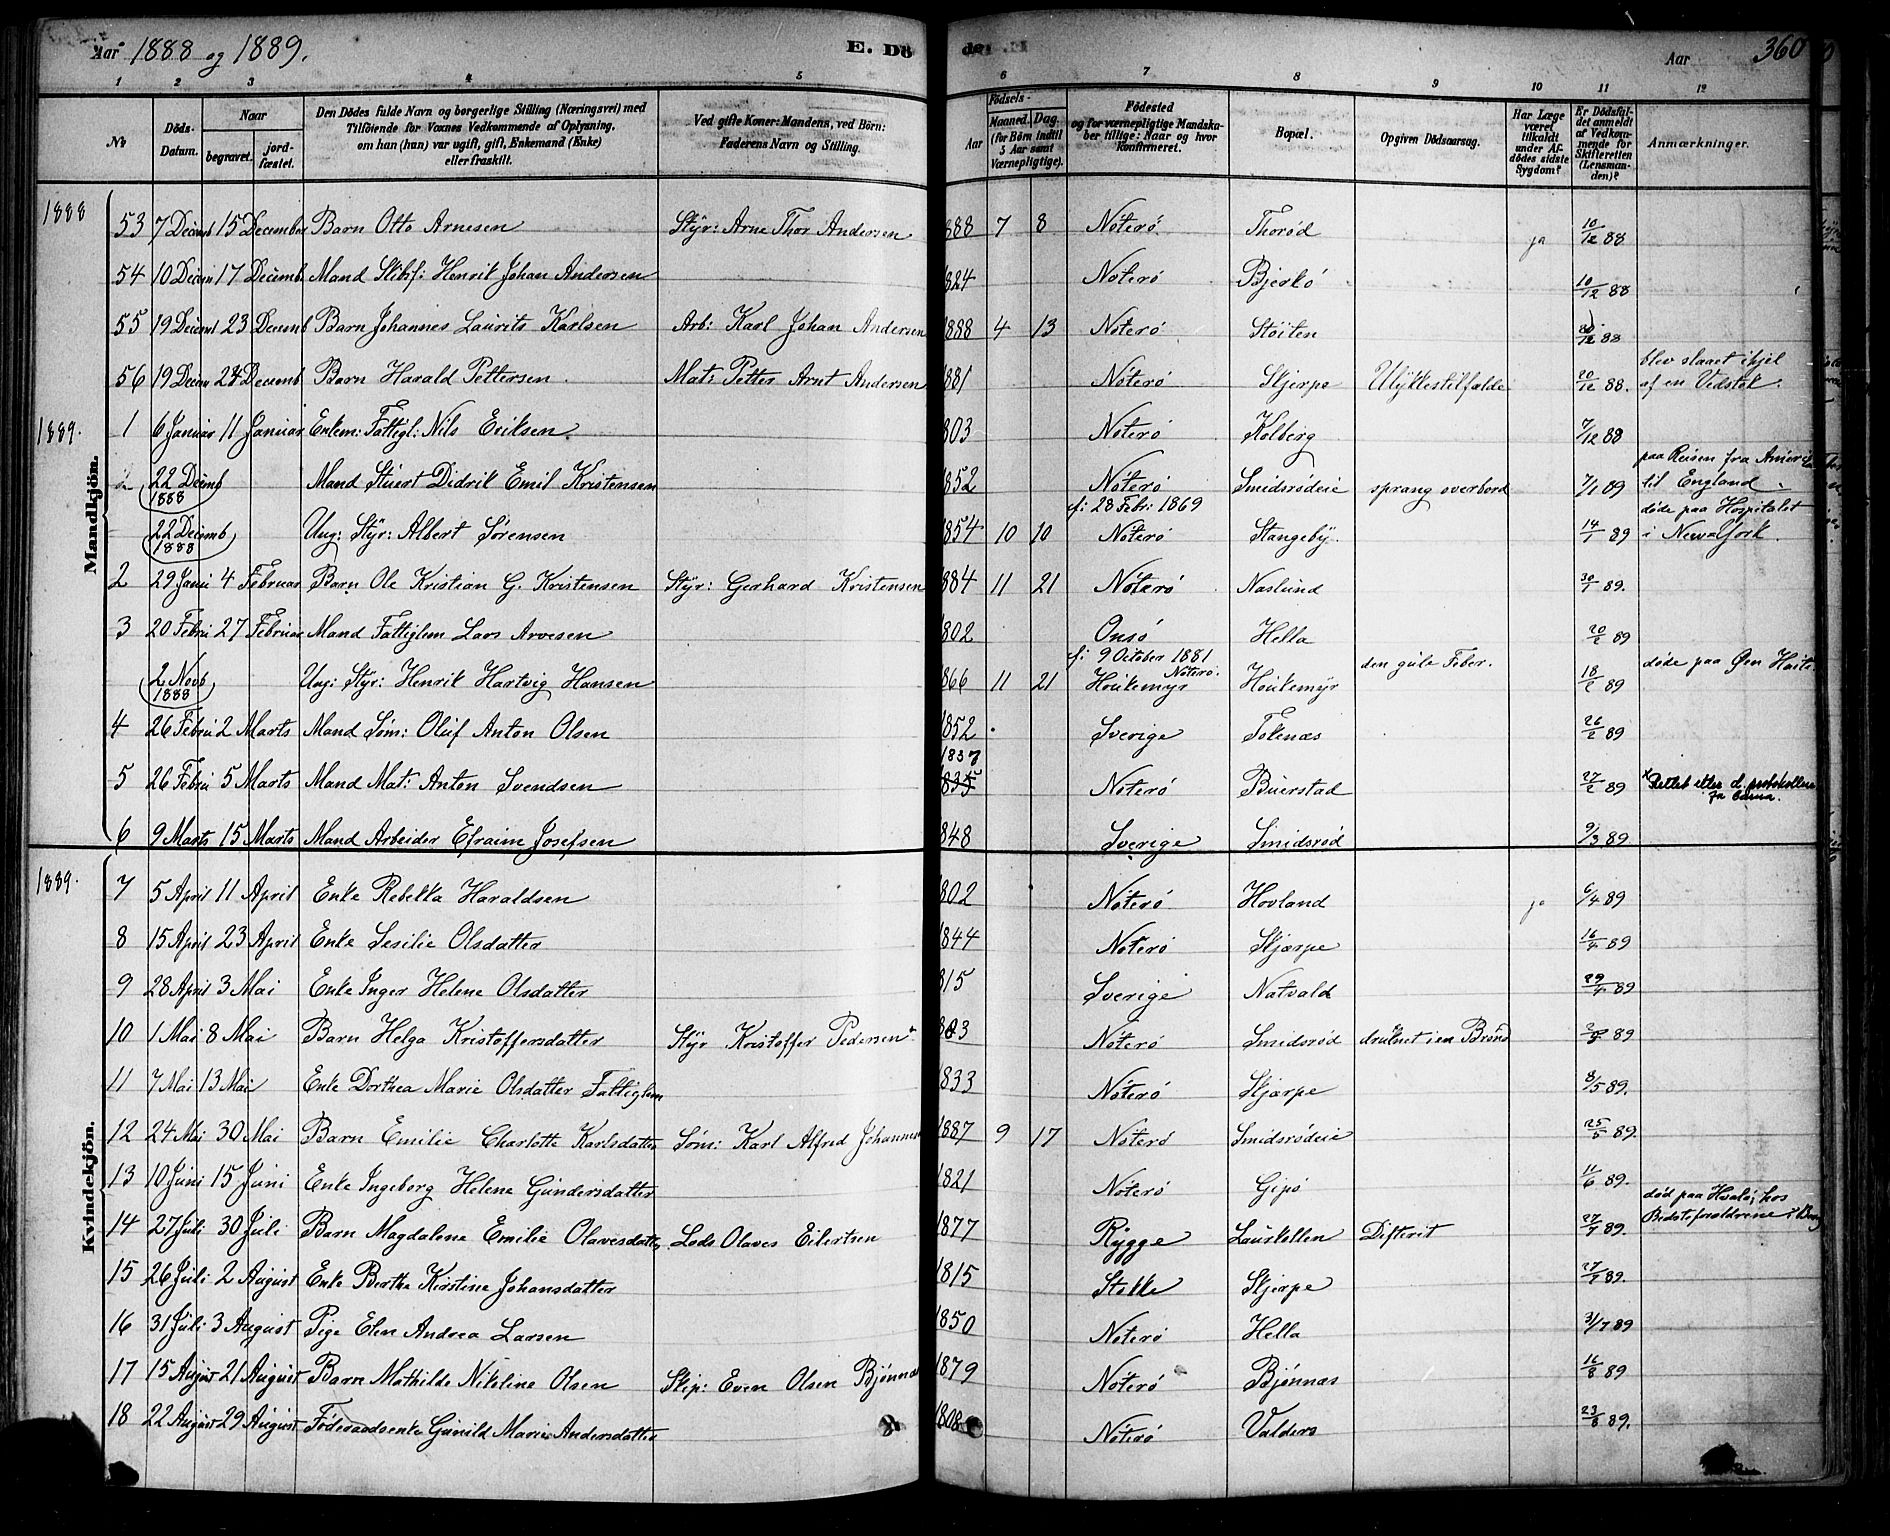 Aar 1888 og 1889.
E. Dö
Aar 360
1 2 3 4 5 6 7 8 9 10 11 12
No
Döds-Datum.
Naar
begravet.
jord-fæstet.
Den Dödes fulde Navn og borgerlige Stilling (Næringsvei) med
Tilföiende for Voxnes Vedkommende af Oplysning,
om han (hun) var ugift, gift, Enkemand (Enke)
eller fraskilt.
Ved gifte Koner: Mandens, ved Börn:
Faderens Navn og Stilling.
Födsels-
Aar
Maaned. Dag.
(for Börn indtil 5 Aar samt Værnepligtige).
Födested
og for værnepligtige Mandska-
ber tillige: Naar og hvor
Konfirmeret.
Bopæl.
Opgiven Dödsaarsag.
Har Læge
været
tilkaldt
under Af-
dödes sidste
Sygdom?
Er Dödsfal-
det anmeldt
af Vedkom-
mende for
Skifteretten
(Lensman-
den)?
Anmærkninger.
Mandkjön.
1888 53 7 Decemb 15 December Barn Otto Arnesen Styr: Arne Thor Andersen 888 7 8 Nöterö Thorød ja 10/12 88
54 10 Decem 17 Decemb Mand Skibsf: Henrik Johan Andersen 824 Nöterö Bjerkö 10/12 88
55 19 Decemb 23 Decemb Barn Johannes Laurits Karlsen Arb: Karl Johan Andersen 1888 4 13 Nöterö Stöiten 12 88
56 19 Decem 24 Decemb Barn Harald Pettersen Mat: Petter Arnt Andersen 881 Nöterö Skjerpe Ulykkestilfælde 20/12 88. blev slaaet ihjel
af en Vedstok.
1889. 1 6 Januar 11 Januar Enkem: Fattigl: Nils Eriksen 803 Nöterö Kolberg 7/12 88
2 22 Decemb 1888 Mand Stuert Didrik Emil Kristensen 1852 Nöterö Smidsrødeie sprang overbord 7/1 89 paa Reisen fra Amerika
til England
22 Decemb 1888 Ung: Styr: Albert Sørensen 1854 10 10 f: 28 Febr: 1869
Nöterö Stangeby 14/1 89 döde paa Hospitalet
i New York.
2 29 Janu 4 Februar Barn Ole Kristian G. Kristensen Styr: Gerhard Kristensen 884 11 21 Nöterö Naslund 30/1 89.
3 20 Febru 27 Februar Mand Fattiglem Lars Arvesen 802 Onsö Hella 20/2 89
2 Novb 1888 Ung: Styr: Henrik Hartvig Hansen 866 11 21 f: 9 October 1881
Nöterö.
Houkemyr Houkemyr den gule Feber. 18/2 89 döde paa Øen Haiti
4 26 Febru 2 Marts Mand Søm: Oluf Anton Olsen 1852 Sverige Tokenæs 26/2 89
5 26 Febru 5 Marts Mand Mat: Anton Svendsen 1837 1835 Nöterö Buerstad 27/2 89 Rettet etter d. protokollen
6 9 Marts 15 Marts Mand Arbeider Efraim Josefsen 848 Sverige Smidsrød 9/3 89.
Kvindekjön.
1889. 7 5 April 11 April Enke Rebekka Haraldsen 802 Nöterö Hovland ja 6/4 89
8 15 April 23 April Enke Sesilie Olsdatter 1844 Nöterö Skjærpe 16/4 89
9 28 April 3 Mai Enke Inger Helene Olsdatter 815 Sverige Natvald 29/4 89
10 1 Mai 8 Mai Barn Helga Kristoffersdatter Styr Kristoffer Pedersen Nöterö Smidsrød druknet i en Brønd 89
11 7 Mai 13 Mai Enke Dorthea Marie Olsdatter Fattiglem 833 Nöterö Skjærpe 8/5 89.
12 24 Mai 30 Mai Barn Emilie Charlotte Karlsdatter Søm: Karl Alfred Johannes 1887 9 17 Nöterö Smidsrødeie 25/5 89.
13 10 Juni 15 Juni Enke Ingeborg Helene Gundersdatter 1821 Nöterö Gipö 11/6 89.
14 27 Juli 30 Juli Barn Magdalene Emilie Olavesdatter Lods Olaves Eilertsen 1877 Rygge Lauskollen Difterit 27/7 89. död paa Hvalö, hos
Bedsteforældrene
15 26 Juli 2 August Enke Berthe Kirstine Johansdatter 1815 Stokke Skjerpe 27/7 89.
16 31 Juli 3 August Pige Elen Andrea Larsen 1850 Nöterö Hella 31/7 89
17 15 August 21 August Barn Mathilde Nikoline Olsen Skip: Even Olsen Bjønnes 1879 Nöterö Bjønnæs 16/8 89
18 22 August 29 August Føderaadsenke Gunild Marie Andersdatter 1808 Nöterö Valderø 23/8 89.